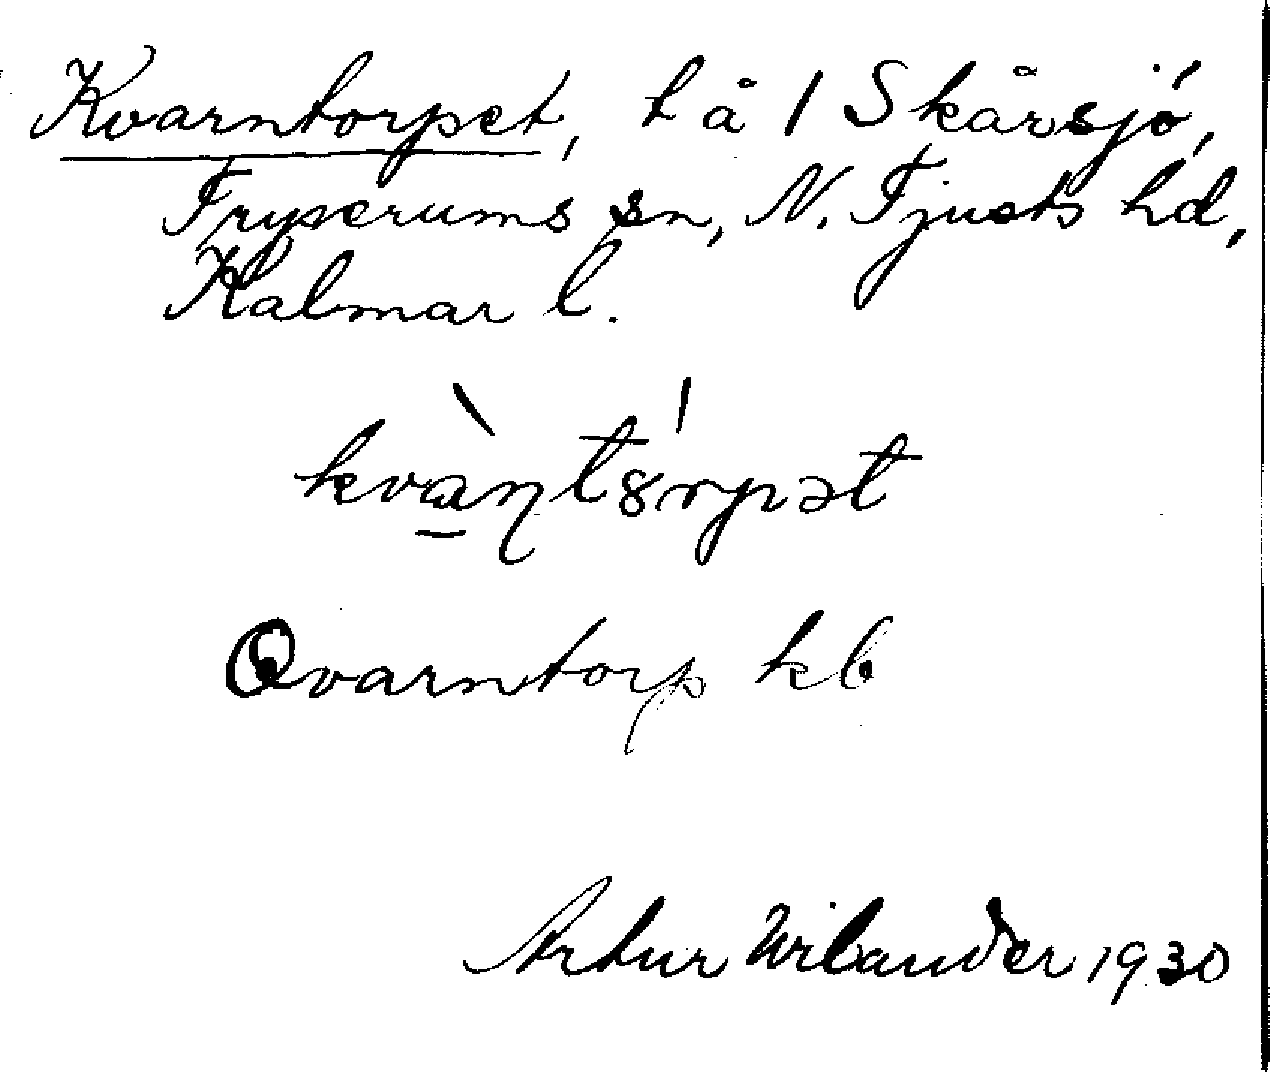 Kvarntorpet, t å 1 Skårsjö,
Tryserums sn, N. Tjusts hd,
Kalmar l.
kvàṉt8́rpət
Qvarntorp kb
Artur Wilander 1930